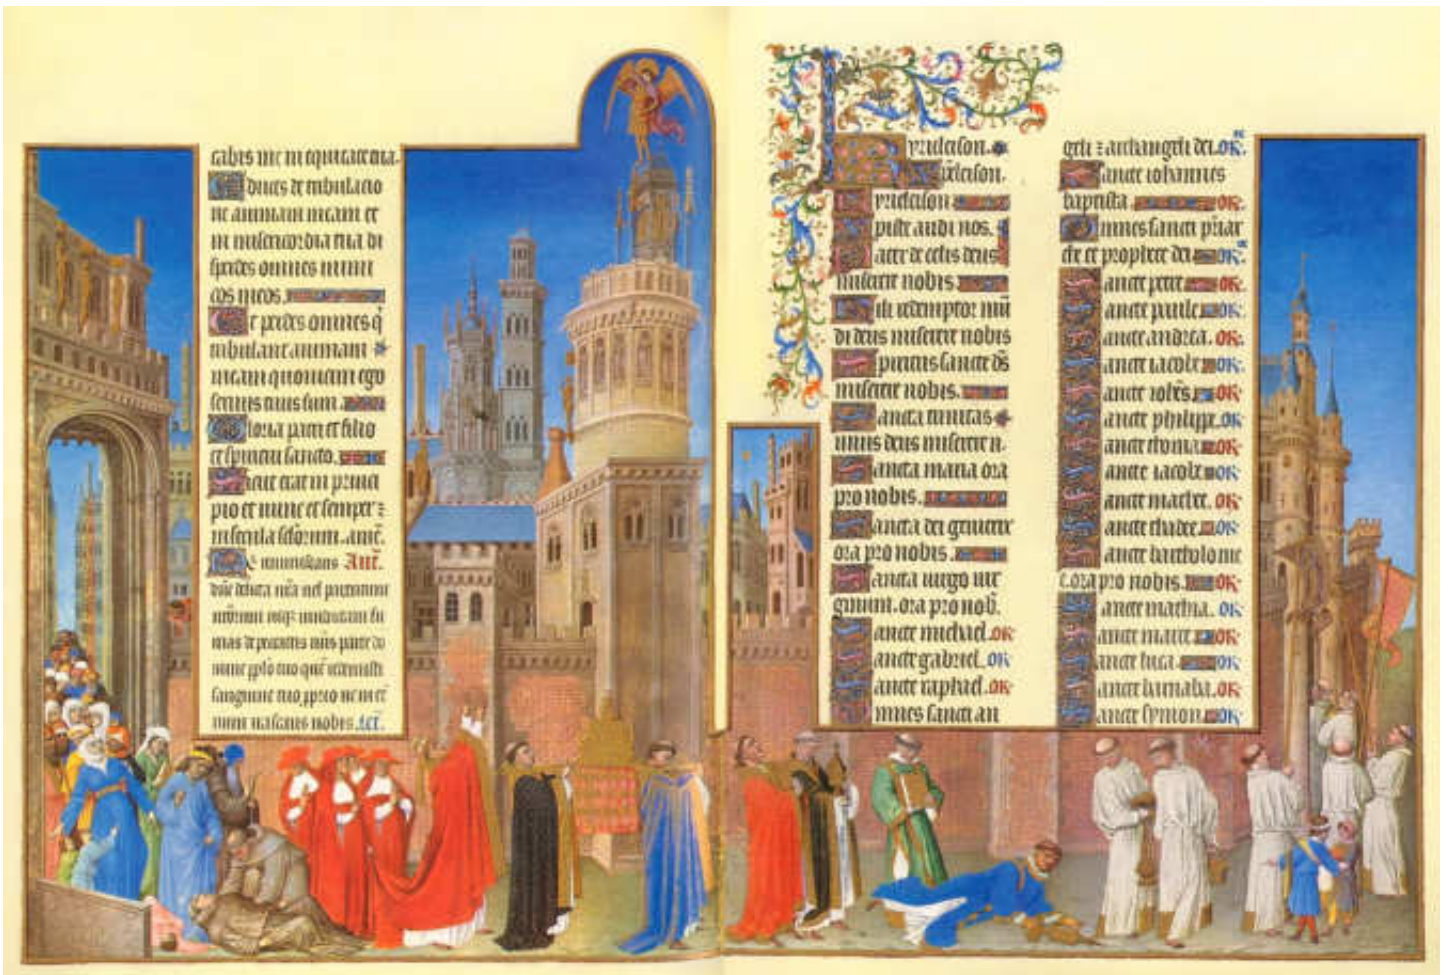 cabis me in equitate tua.
Educes de tribulatio
ne animam meam et
in misericordia tua di
sperdes omnes inimi
cos meos.
Et perdes omnes q̄
tribulant animam
meam quoniam ego
servus tuus sum.
Gloria patri et filio
et spiritui sancto.
Sicut erat in princi
pio et nunc et semper ⁊
in secula sc̄lorum. amē.
Ne reminiscaris Añt.
sanguine tuo
nobis.
Kyrieleison.
Xpeleison.
Kyrieleison
Xpiste audi nos.
Pater de celis deus
miserere nobis.
Fili redemptor mū
di deus miserere nobis
Spiritus sancte ds̄
miserere nobis.
Sancta trinitas
unus deus miserere n.
Sancta maria ora
pro nobis.
Sancta dei genitrix
ora pro nobis.
Sancta virgo vir
ginum. ora pro nob̄.
Sancte michael. or.
Sancte gabriel. or
Sancte raphael. or
Omnes sancti an
geli ⁊ archangeli dei. or.
Sancte iohannes
baptista. or.
Omnes sancti p̄iar
che et prophete dei or.
Sancte petre or.
Sancte paule or.
Sancte andrea. or.
Sancte iacobe or.
Sancte ioh̄es or.
Sancte philippe. or
Sancte thoma or.
Sancte iacobe or.
Sancte mathee. or
Sancte thadee. or.
Sancte bartholome
e. ora pro nobis. or
Sancte mathia. or
Sancte marce or.
Sancte luca. or
Sancte barnaba. or.
Sancte symon. or.